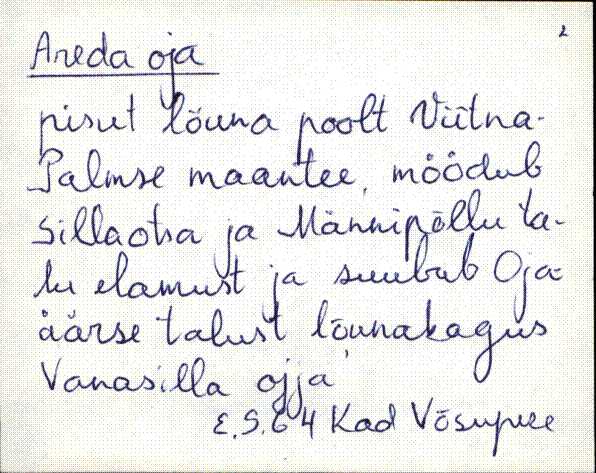 2
Areda oja
pisut lõuna poolt Viitna-
Palmse maantee, möödub
Sillaotsa ja Männipõllu ta-
lu elamust ja suubub Oja-
äärse talust lõunakagus
Vanasilla ojja
E.S.64 Kad Võsupere